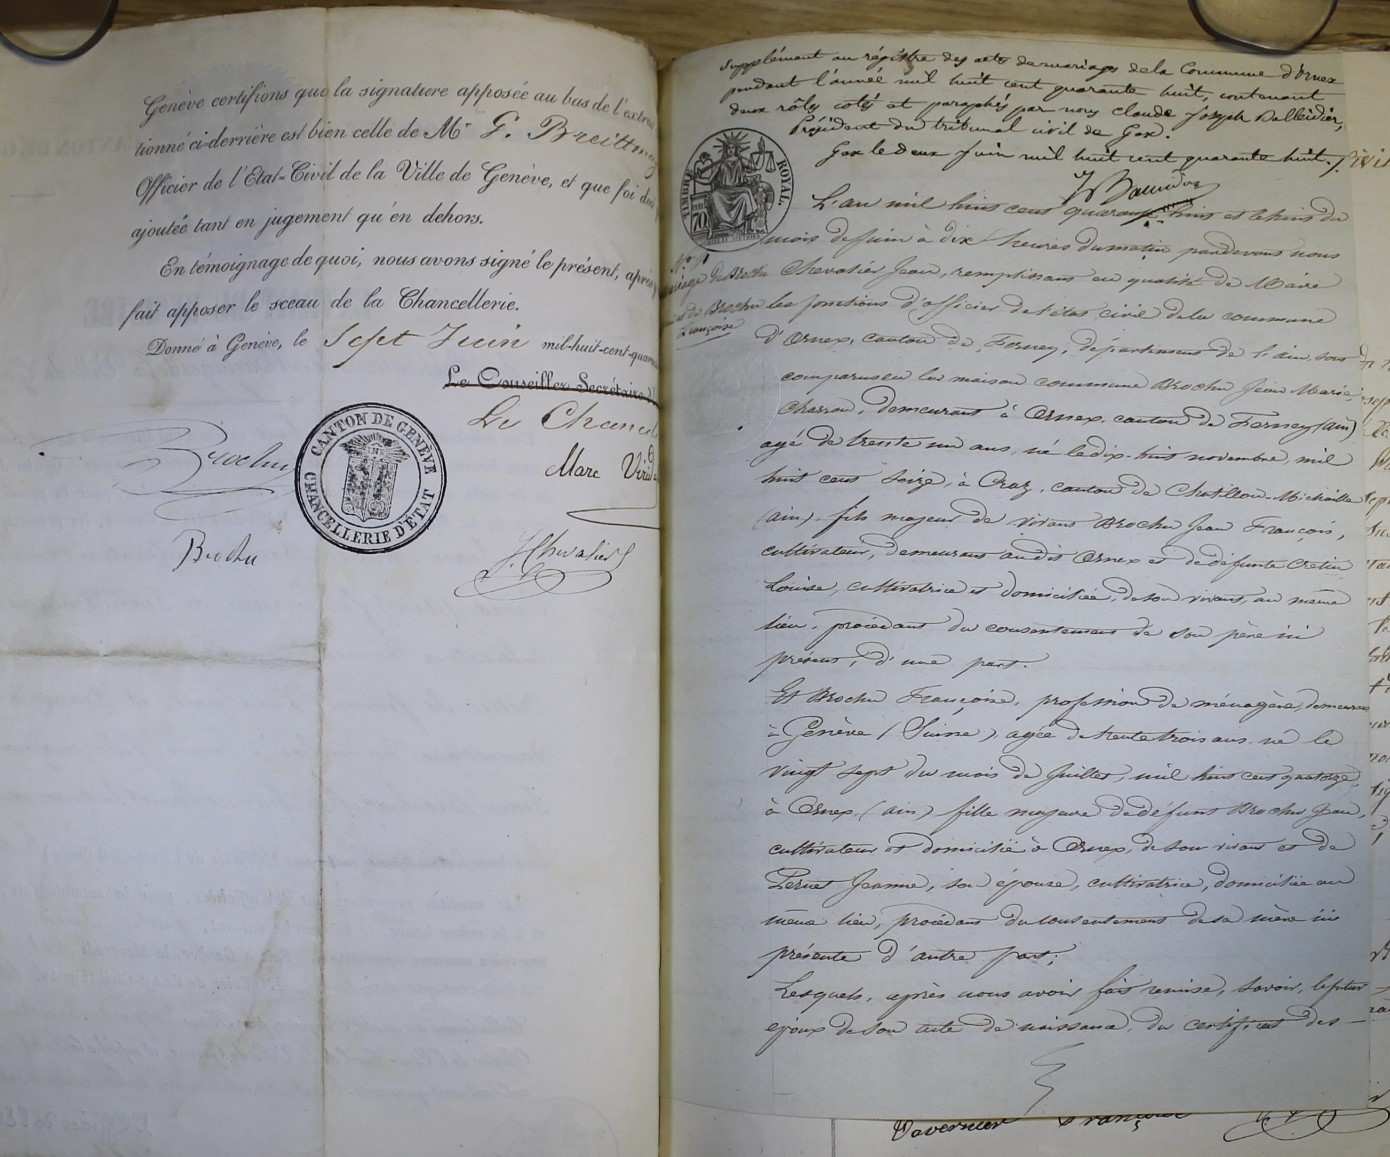 Genève certifions que la signature apposée au bas de l'extrai
tionné ci-derrière est bien celle de Mr G. Breittmay
Officier de l'Etat-Civil de la Ville de Genève, et que foi doi
ajoutée tant en jugement qu'en dehors.
En témoignage de quoi, nous avons signé le présent, après y
fait apposer le sceau de la Chancellerie.
Donné à Genève, le Sept Juin mil-huit-cent-quara
Le Conseiller Secrétaire d'
Le Chancel
Marc Viri
CANTON DE GENÈVE
CHANCELLERIE D'ETAT
Brochu
Brochu
J. Chevalier
Supplément au régistre des acts de mariages de la Commune d'Ornex
pendant l'année mil huit cent quarante huit, contenant
deux rôles cotés et paraphés par nous claude Joseph
Président du tribunal civil de Gex.
Gex le deux Juin mil huit cent quarante huit.
TIMBRE ROYAL
70
N° 
mariage de Brochu
et de Brochu
Françoise
L'an mil huit cent quarante huit et le huit du
mois de Juin à dix heures du matin pardevant nous
Chevalier Jean, remplissant en qualité de Maire
les fonctions d'officier de l'état civil de la commune
D'Ornex, canton de Ferney, département de l'ain, sont
comparus en la maison commune Brochu Jean Marie
charron, demeurant à Ornex canton de Ferney (ain)
agé de trente un ans, né le dix-huit novembre, mil
huit cent seize, à Craz, canton de Chatillon-Michaille
(ain), fils majeur de vivant Brochu Jean François,
cultivateur, demeurant audit Ornex et de défunte Cretin
Louise, cultivatrice et domiciliée, de son vivant, au même
lieu, procédant du consentement de son père ici
présent, d'une part.
Et Brochu Françoise, profession de ménagère, demeurant
à Genève (Suisse), agée de trente trois ans né le
vingt sept du mois de Juillet, mil huit cent quatorze,
à Ornex (ain) fille majeure de défunt Brochu Jean,
cultivateur et domicilié à Ornex, de son vivant et de
Pernet Jeanne, son épouse, cultivatrice, domiciliée au
même lieu, procédant du consentement de sa mère ici
présente d'autre part;
Lesquels, après nous avoir fait remise, savoir, le futur
époux de son acte de naissance, du certificat des
Tavernier François